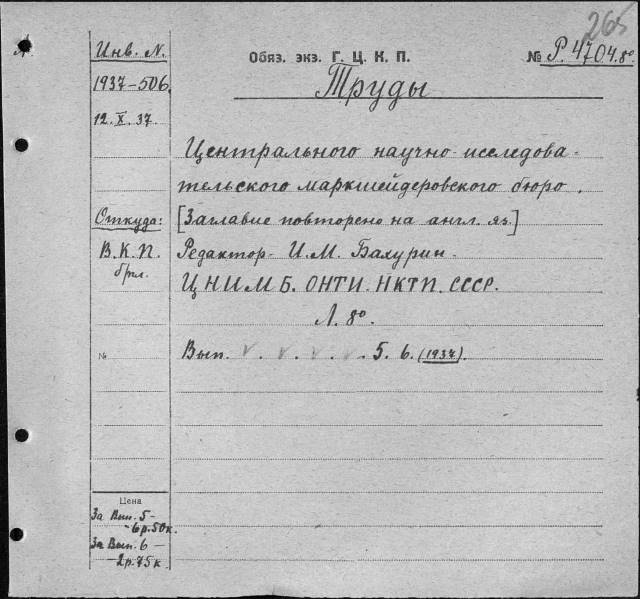 265
Инв. N.
Обяз. экз. Г. Ц. К. П.
№ Р. 4704.8º
1937-506.
Труды
12. X. 37.
Центрального научно-исследова-
тельского маркшейдеровского бюро.
Откуда:
[Заглавие повторено на англ. яз]
В. К. П.
брл.
Редактор - И. М. Бахурин.
ЦНИМБ. ОНТИ. НКТП. СССР.
Л. 8º.
№
Вып. v. v. v. v. 5. 6. (1937).
Цена
За Вып. 5-
-6р.50к.
За Вып. 6-
-2р.75к